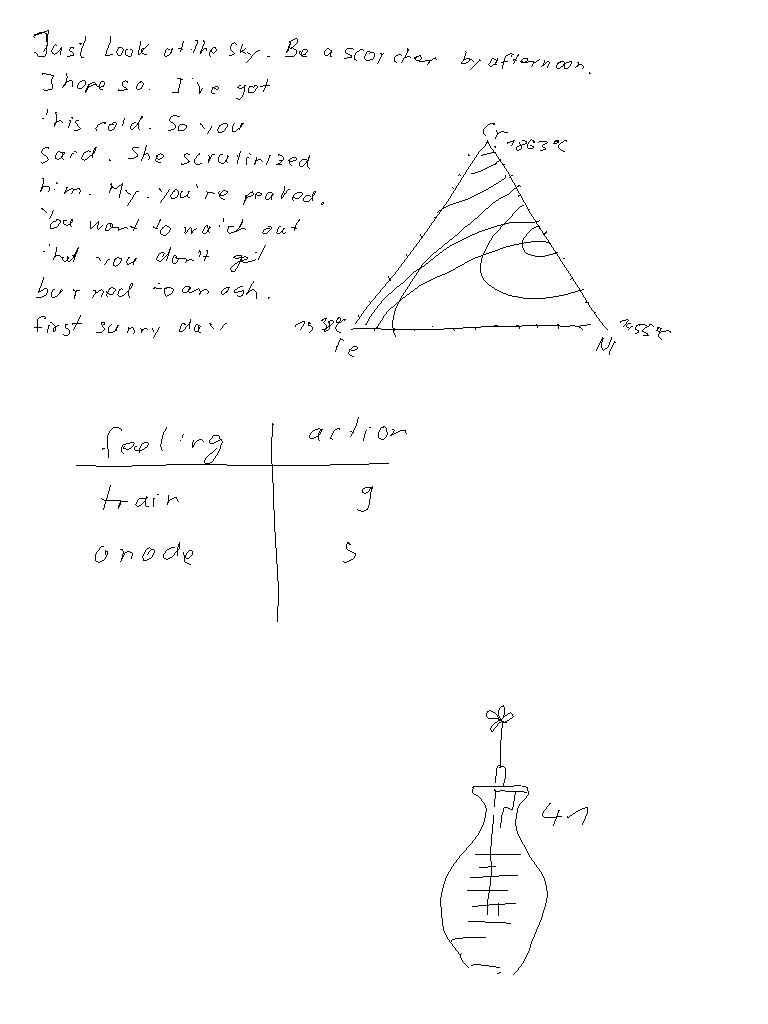 Just Look at the sky. Be a scorcher by afternoon.
I hope so. I've got
this cold. So you
said. She scrutinized
him. My. you're peaked.
You want to watch out
that you don't get
burned to an ash.
first sunny day
Cr
1863°C
1538°C
1455°C
Fe
Ni
feeling action
train g
anode s
41